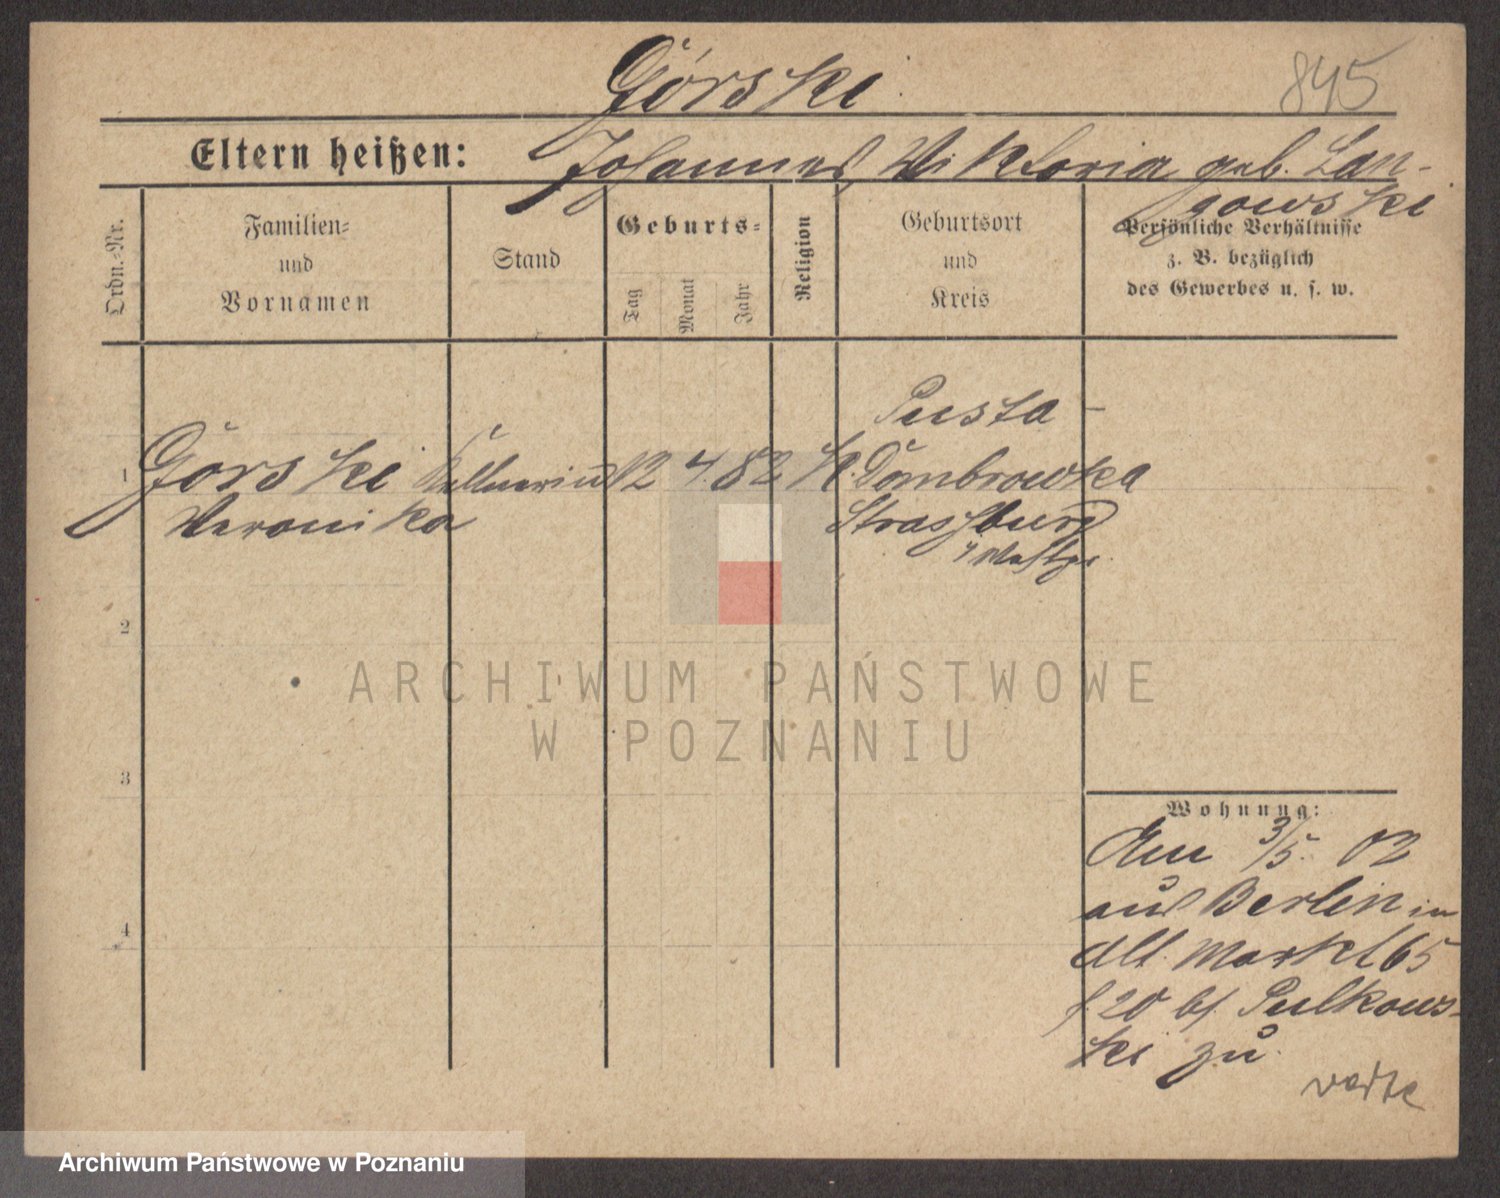 Górski
845
Eltern heißen: Johannes, Viktoria geb. Lan-
gowski
Ordn.-Nr.
Familien-
und
Vornamen
Stand
Geburts-
Tag
Monat
Jahr
Religion
Geburtsort
und
Kreis
Persönliche Verhältnisse
z. B. bezüglich
des Gewerbes u. s. w.
Pusta -
1 Górski Kellnerin 12 4. 82 K. Dombrowka
Veronika Strassburg
i/ Westpr.
2
ARCHIWUM PAŃSTWOWE
W POZNANIU
3
4
Wohnung:
Am 3/5. 02
aus Berlin in
Alt. Markt 65
b/ Pulkows-
ki zu.
verte
Archiwum Państwowe w Poznaniu